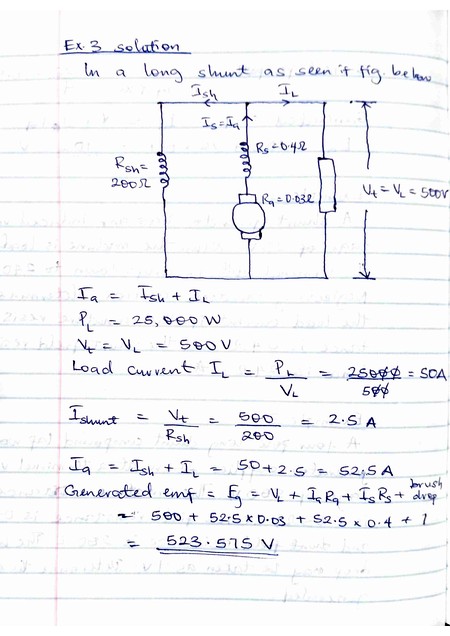 Ex. 3 solution
In a long shunt as seen it fig. below
Ish IL
Is=Ia
Rs=0.4Ω
Rsh=
200Ω
Ra=0.03Ω
Vt = VL = 500V
Ia = Ish + IL
PL = 25,000 W
Vt = VL = 500 V
Load current IL = PL/VL = 25000/500 = 50A
Ishunt = Vt/Rsh = 500/200 = 2.5 A
Ia = Ish + IL = 50+2.5 = 52.5 A
Generated emf = Eg = VL + IaRa + IsRs + brush drop
= 500 + 52.5 x 0.03 + 52.5 x 0.4 + 1
= 523.575 V